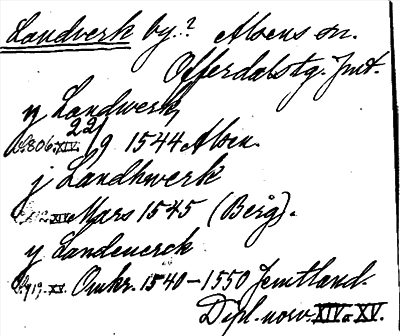 Landverk by.? Alsens sn.
Offerdals tg. Jmt.
y Landwerk
806. XIV. 22/9 1544 Alsen.
j Landhwerk
XIV Mars 1545 (Berg).
y Landeuerck
919. XV. Omkr. 1540-1550 Jemtland.
Dipl. norv. XIV o. XV.